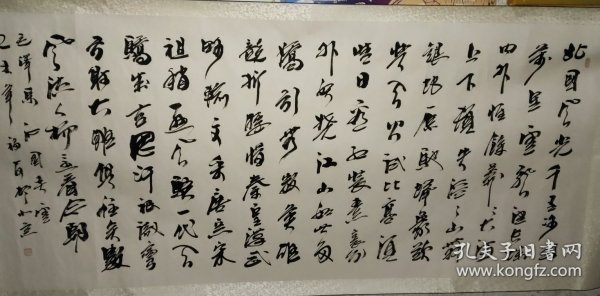 北国风光千里冰封
万里雪飘望长城
内外惟余莽莽大河
上下顿失滔滔山舞
银蛇原驰蜡象欲
与天公试比高须
晴日看红装素裹分
外妖娆江山如此多
娇引无数英雄
竞折腰惜秦皇汉武
略输文采唐宗宋
祖稍逊风骚一代天
骄成吉思汗只识弯
弓射大雕俱往矣数
风流人物还看今朝
毛泽东沁园春雪
孔夫子旧书网
www.kongfz.com